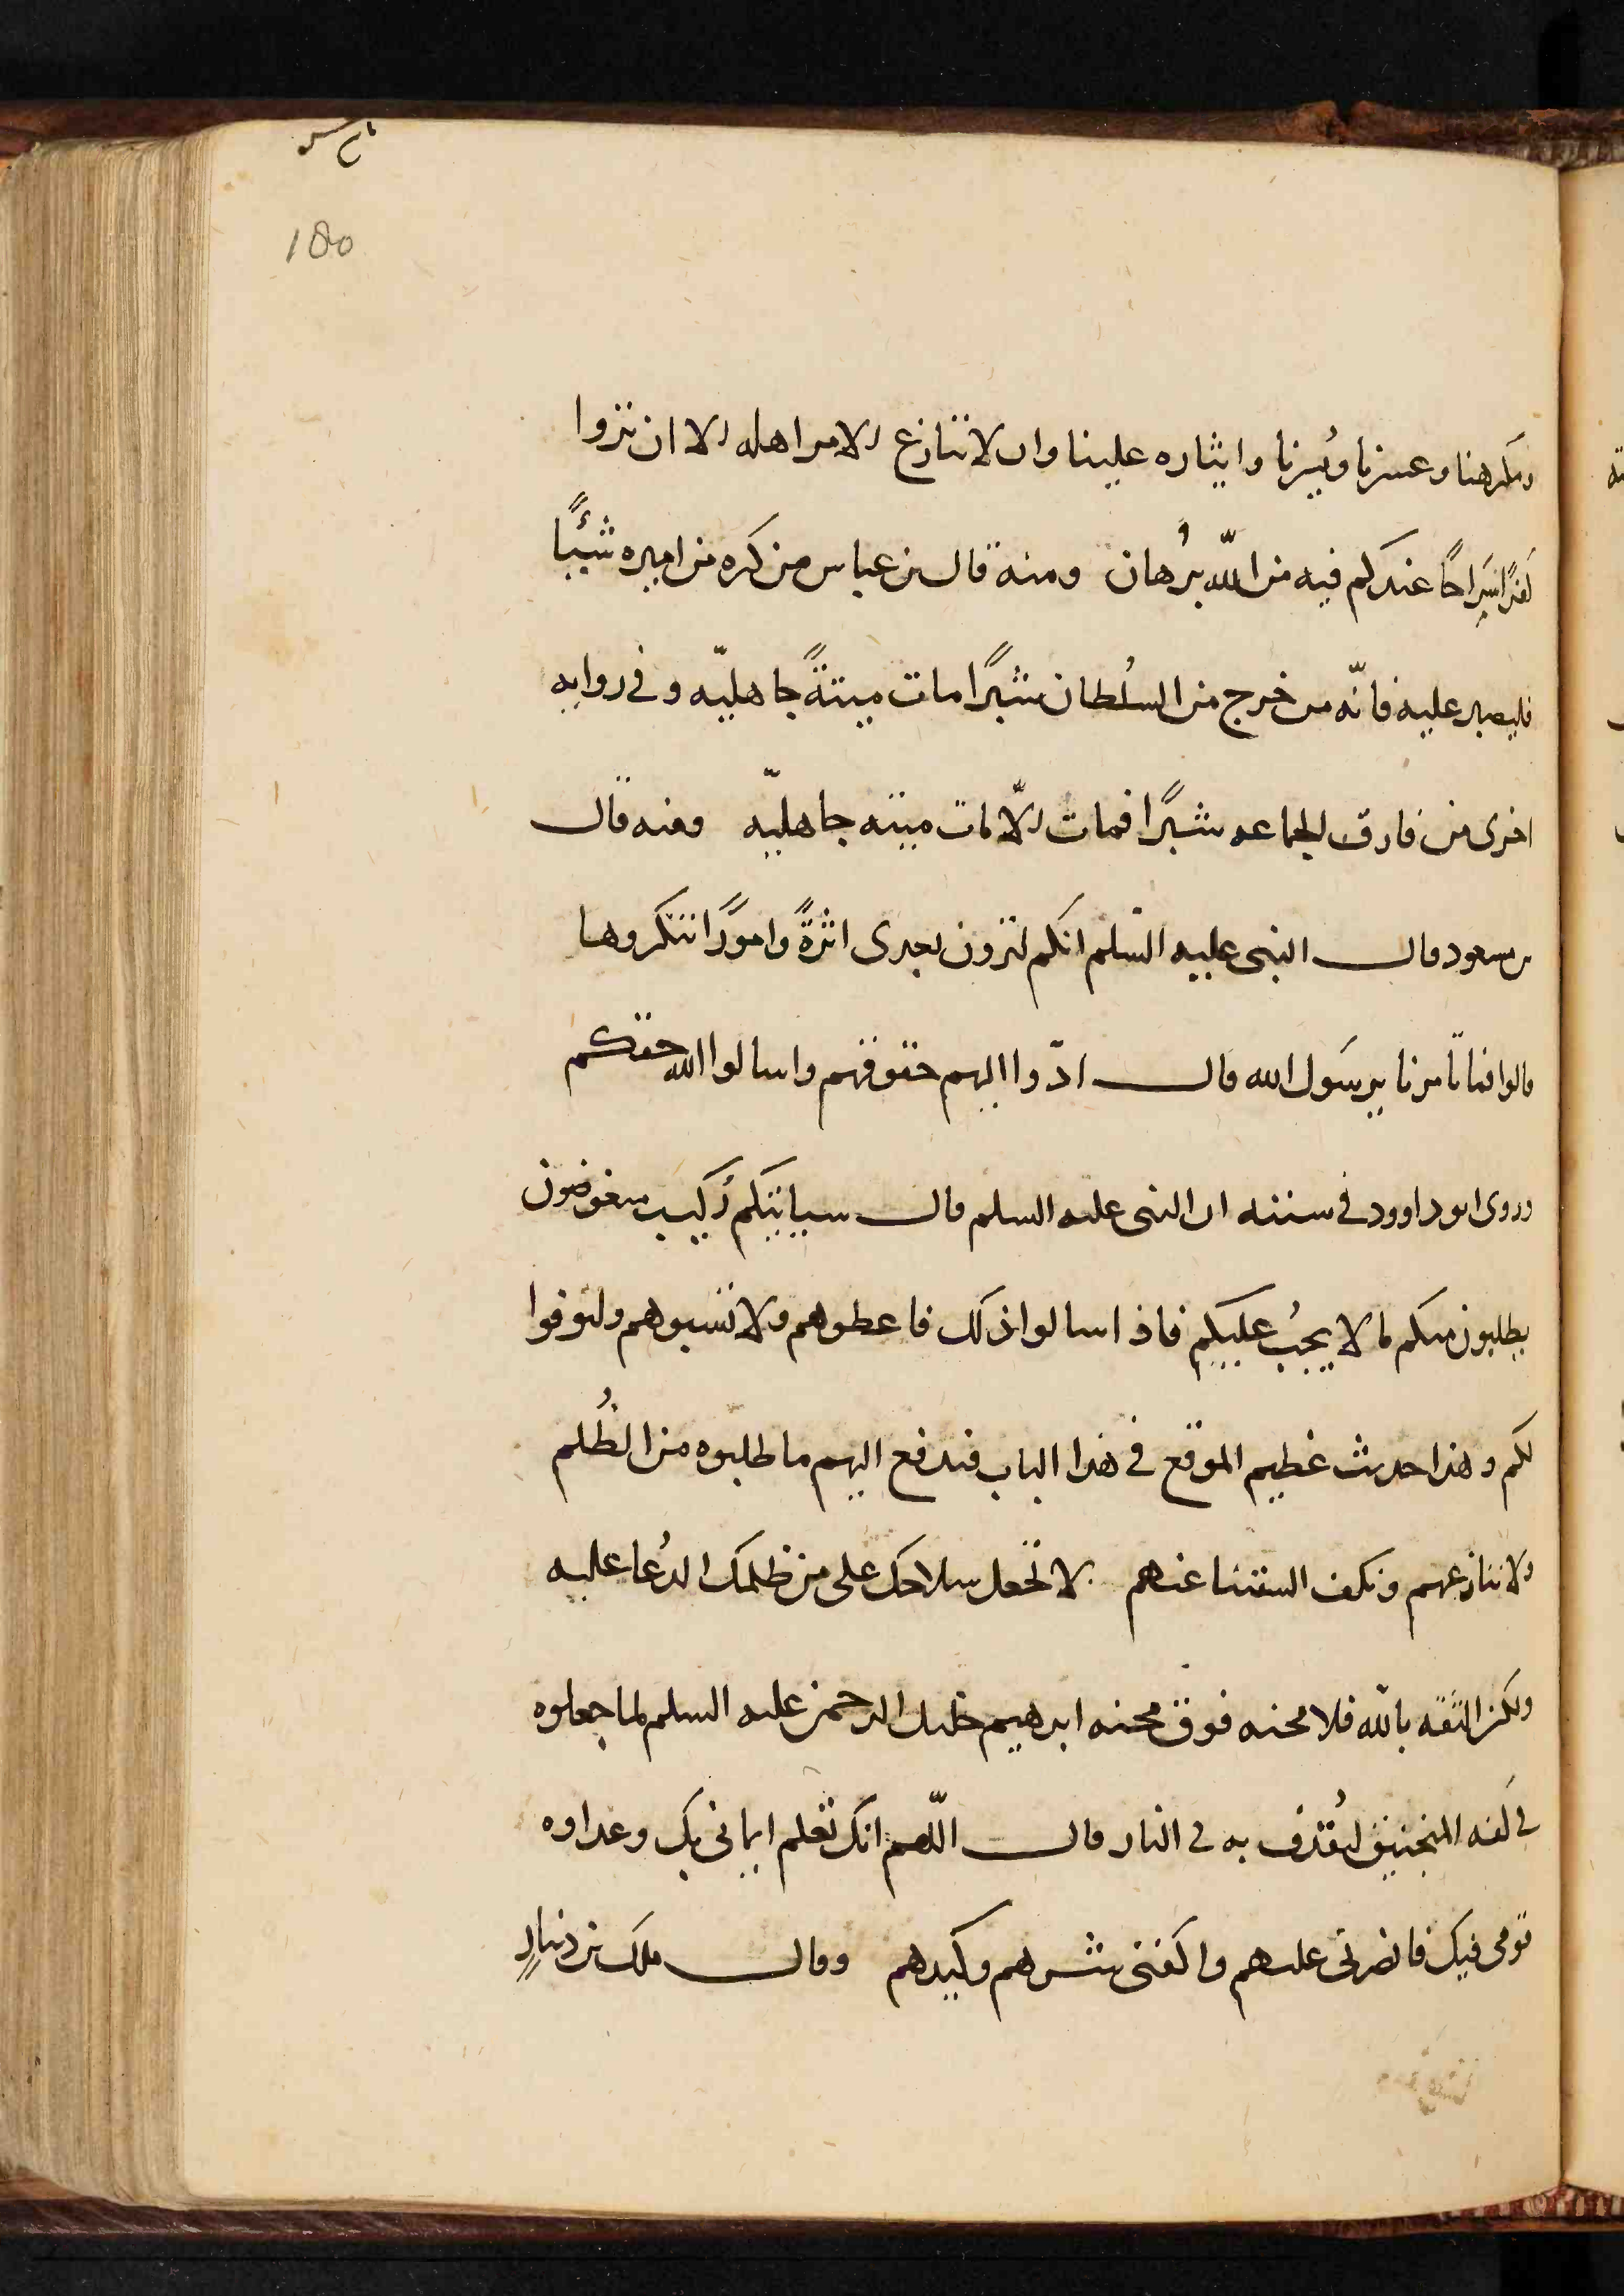 180
ومكرهنا وعسرنا ويُسرنا وايثاره علينا وان لا تنازع الامر اهله الا ان تروا
كفرًا صَرَاحًا عندكم فيه من اللّه بُرهان ومنه قال بن عباس من كره من اميره شيئًا
فليصبر عليه فانّه من خرج من السُلطان شبرًا مات ميتةً جاهليّه وفي روايه
اخرى من فارق الجماعه شبرًا فمات الّا مات ميته جاهليّه ومنه قال
بن مسعود قال النبى عليه السّلم انكم لترون بعدى اثرةً وامورًا تنكروها
قالوا فما تامرنا يرسَول الله قال ادّوا اليهم حقوقهم واسالوا الله حقكم
وروى ابو داوود في سننه ان النبى عليه السلم قال سياتيكم رُكيب مبغوضون
يطلبون منكم ما لا يجبُ عليكم فاذا سالوا ذلك فاعطوهم ولا تسبوهم وليوفوا
لكم وهذا حديث عظيم الموقع في هذا الباب فندفع اليهم ما طلبوه من الظُلم
ولا ننازعهم ونكف السنتنا عنهم لا تجعل سلاحك على من ظلمك الدُعا عليه
ولكن الثقه باللّه فلا محنه فوق محنه ابرهيم خليل الرحمن عليه السلم لما جعلوه
في كفه المنجنيق ليُقذف به في النار قال اللّهم انك تعلم ايمانى بك وعداوه
قومى فيك فانصرنى عليهم واكفنى شرهم وكيدهم وقال ملك بن دينارٍ